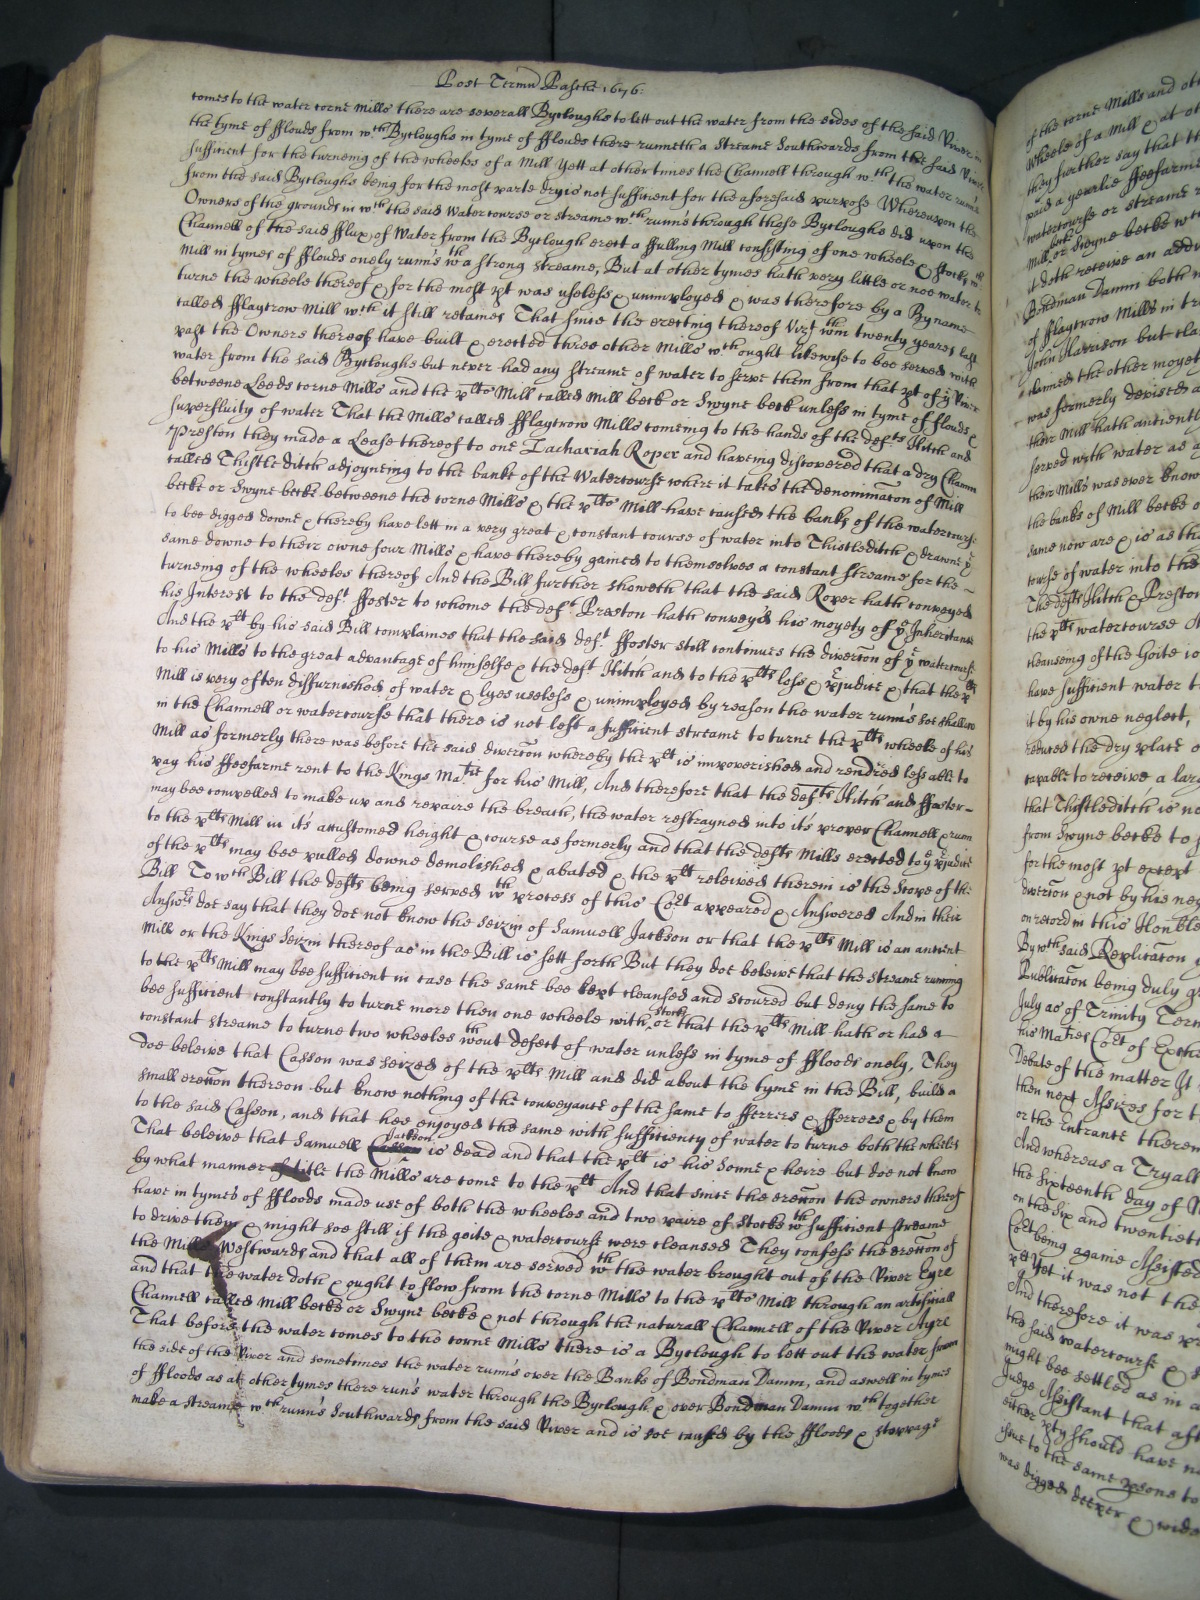 Post Termũ Pasche 1676:
comes to the water corne Mills there are severall Byeloughs to lett out the water from the sides of the said River in
the tyme of fflouds from wth Byeloughs in tyme of fflouds there runneth a streame Southwards from the said River
sufficient for the turneing of the wheeles of a Mill yett at other times the Channell through wth the water runs
from the said Byeloughs being for the most parte dry is not sufficient for the aforesaid purpose Whereupon the
Owners of the grounds in wth the said Watercourse or streame wth runs through those Byeloughs did upon the
Channell of the said fflux of Water from the Byelough erect a ffulling Mill consisting of one wheele & stocks
Mill in tymes of fflouds onely runs wth a strong streame, But at other tymes hath very little or noe water to
turne the wheels thereof & for the most pt was useless & unimployed & was therefore by a Byname
called fflaycrow Mill wth it still retaines That since the erecting thereof Vizt wthin twenty yeares last
past the Owners thereof have built & erected three other Mills wth ought likewise to bee served with
water from the said Byeloughs but never had any streame of water to serve them from that pt of ye River
betweene Leeds corne Mills and the plts Mill called Mill beck or Swyne beck unless in tyme of flouds &
superfluity of water That the Mills called fflaycrow Mills comeing to the hands of the defts Hitch and
Preston they made a Lease thereof to one Zachariah Roper and haveing discovered that a dry Channell
called Thistleditch adjoyneing to the banke of the Watercourse where it takes the denominacon of Mill
becke or Swyne becke betweene the corne Mills & the plts Mill have caused the banks of the watercourse
to bee digged downe & thereby have lett in a very great & constant course of water into Thistleditch & drawne ye
same downe to their owne four Mills & have thereby gained to themselves a constant streame for the
turneing of the wheeles thereof And the Bill further sheweth that the said Roper hath conveyed
his Interest to the deft. ffoster to whome the deft. Preston hath conveyed his moyety of ye Inheritance
And the plt by his said Bill complaines that the said deft. ffoster still continues the divercon of ye watercourse
to his Mills to the great advantage of himselfe & the deft Hitch and to the plts loss & prejudice & that the plts
Mill is very often disfurnished of water & lyes useless & unimployed by reason the water runns soe shallow
in the Channell or watercourse that there is not left a sufficient streame to turne the plts wheele of his
Mill as formerly there was before the said divercon whereby the plt is impoverished and rendred less able to
pay his ffeefarme rent to the Kings Matie for his Mill, And therefore that the defts Hitch and ffoster
may bee compelled to make up and repaire the breach, the water restrayned into it's proper Channell & run
to the plts Mill in it's accustomed height & course as formerly and that the defts Mills erected to ye prejudice
of the plts may bee pulled downe demolished & abated & the plt releived therein is the scope of the
Bill To wth Bill the defts being served wth process of this Cort appeared & Answered And in their
Answrs doe say that they doe not know the seizin of Samuell Jackson or that the plts Mill is an antient
Mill or the Kings Seizin thereof as in the Bill is sett forth But they doe beleive that the streame running
to the plts Mill may bee sufficient in case the same bee kept cleansed and scoured but deny the same to
bee sufficient constantly to turne more then one wheele with stocks or that the plts Mill hath or had a
constant streame to turne two wheeles wthout defect of water unless in tyme of ffloods onely, They
doe beleive that Casson was seized of the plts Mill and did about the tyme in the Bill, build a
small ereccon thereon but know nothing of the conveyance of the same to fferrers & fferrers & by them
to the said Casson, and that hee enjoyed the same with sufficiency of water to turne both the wheeles
That beleive that Samuell Jackson is dead and that the plt is his sonne & heire but doe not know
by what manner of title the Mills are come to the plt And that since the ereccon the owners thereof
have in tymes of ffloods made use of both the wheeles and two paire of stocks wth sufficient streame
to drive them & might soe still if the goite & watercourse were cleansed They confess the ereccon of
the Mills Westwards and that all of them are served wth the water brought out of the River Eyre
and that the water doth & ought to flow from the corne Mills to the plts Mill through an artificiall
Channell called Mill becke or Swyne becke & not through the naturall Channell of the River Ayre
That before the water comes to the corne Mills there is a Byelough to lett out the water from
the side of the River and sometimes the water runns over the Banks of Bondman Damm, and aswell in tymes
of ffloods as at other tymes there run's water through the Byelough & over Bondman Damm wth together
make a streame wth runns Southwards from the said River and is soe caused by the ffloods & stoppage
of the corne Mills and oth
wheeles of a Mill & at ot
they further say that th
paid a yearlie ffeefarme
watercourse or streame
Mill or Swyne becke wth
it doth receive an addi
Bondman Damm both
of fflaycrow Mills in tr
John Harrison but cla
claimed the other moyet
was formerly devised a
their Mill hath antiently
served with water as
then Mills was ever know
the banks of Mill becke o
same now are & is as th
course of water into the
The defts Hitch & Preston
the plts watercourse
cleanseing of the Goite is
have sufficient water t
it by his owne neglect,
the dry place o
capable to receive a larg
that Thistleditch is no
from Swyne becke to
for the most pt except
divercon & not by his neg
on record in this Honble
By wth said Replicacon
Publicacon being duly g
July as of Trinity Term
his Maties Cort of Exche
Debate of the matter It
then next Assizes for t
or the Entrance therein
And whereas a Tryall
the Sixteenth day of N
on the six and twentieth
Cort being againe Assisted
plt Yet it was not the
And therefore it was
the said watercourse &
might bee settled as in a
Judge Assistant that aft
either pty should have no
issue to the same psons to
was digged deeper & wide